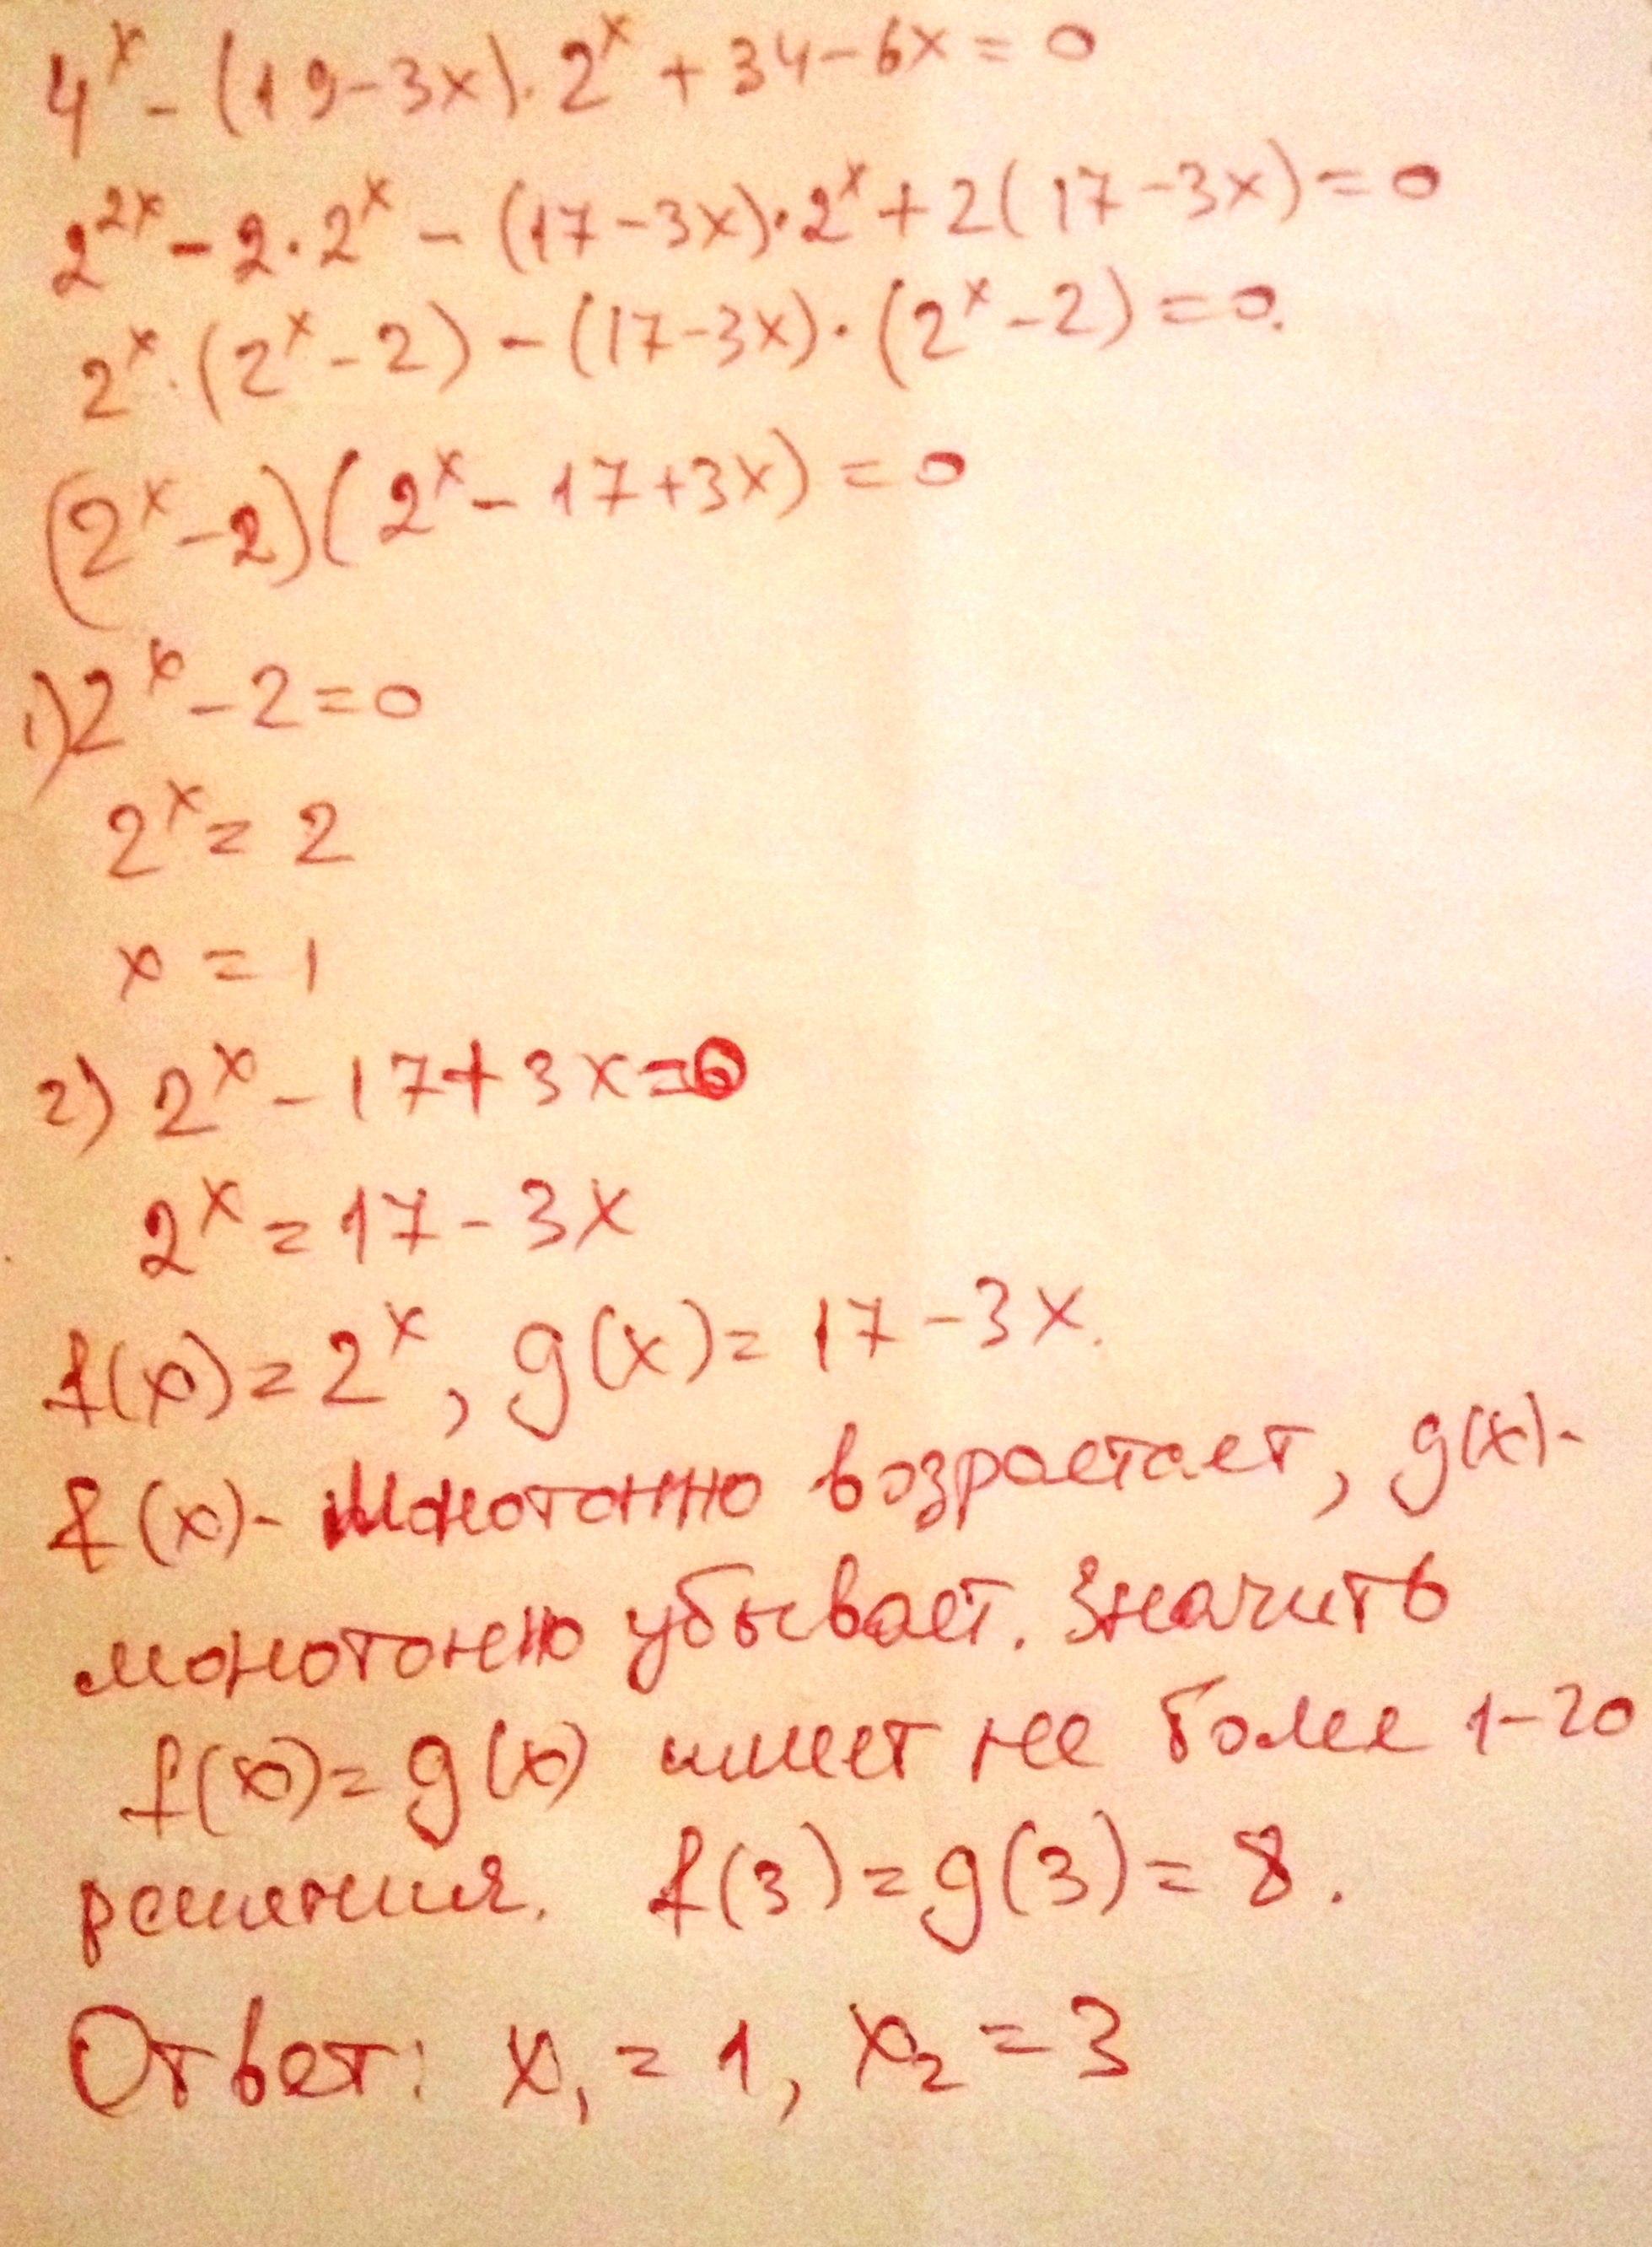 4^x - (19-3x)·2^x + 34-6x = 0
2^{2x} - 2·2^x - (17-3x)·2^x + 2(17-3x) = 0
2^x·(2^x-2) - (17-3x)·(2^x-2) = 0.
(2^x-2)(2^x-17+3x) = 0
1) 2^x-2=0
2^x = 2
x = 1
2) 2^x-17+3x=0
2^x = 17-3x
f(x) = 2^x, g(x) = 17-3x.
f(x)- монотонно возрастает, g(x)-
монотонно убывает. Значить
f(x) = g(x) имеет не более 1-го
решения. f(3) = g(3) = 8.
Ответ: x₁ = 1, x₂ = 3